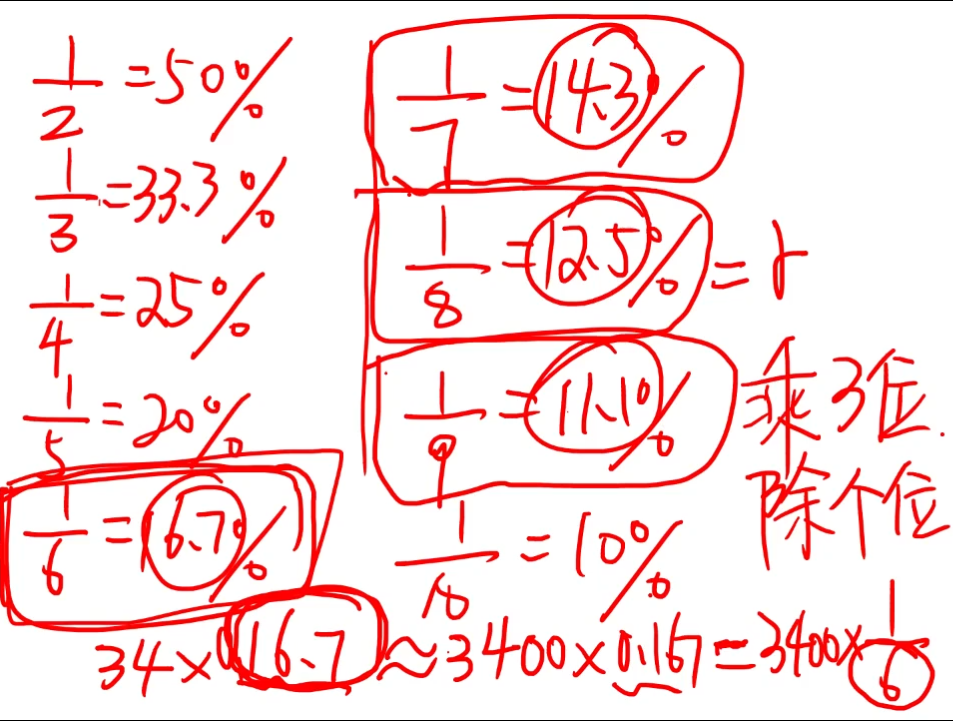 1/2 = 50%
1/3 = 33.3%
1/4 = 25%
1/5 = 20%
1/6 = 16.7%
1/7 = 14.3%
1/8 = 12.5% = r
1/9 = 11.1%
1/10 = 10%
乘3位
除个位
34×16.7≈3400×0.167=3400×1/6